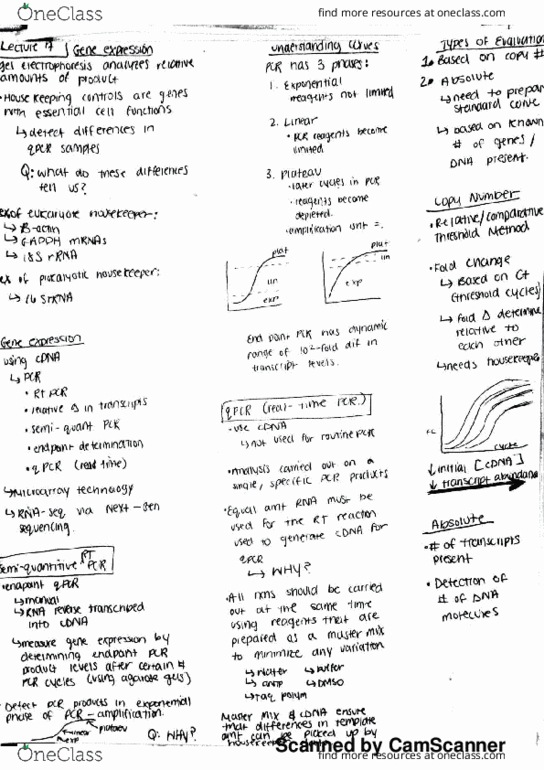 OneClass
find more resources at oneclass.com
OneClass
find more resources at oneclass.com
Lecture 7
Gene expression
gel electrophoresis analyzes relative
amounts of product
• Housekeeping controls are genes
with essential cell functions
↳ detect differences in
qPCR samples
Q: what do these differences
tell us?
ex of eukaryote housekeeper:
↳ B-actin
↳ GADDH mRNAs
↳ 18S rRNA
ex of prokaryotic housekeeper:
↳ 16 SrRNA
Gene expression
using cDNA
↳ PCR
• RT PCR
• relative Δ in transcripts
• semi-quant PCR
• endpoint determination
• qPCR (real time)
↳ Microarray technology
↳ RNA-seq via Next-Gen
sequencing.
semi-quantitative RT PCR
• endpoint qPCR
↳ manual
↳ RNA reverse transcribed
into cDNA
↳ measure gene expression by
determining endpoint PCR
product levels after certain #
PCR cycles (using agarose gels)
Detect PCR products in exponential
phase of PCR-amplification.
plateau
linear
exp
Q: WHY?
understanding curves
PCR has 3 phases:
1. Exponential
reagents not limited
2. Linear
• PCR reagents become
limited
3. Plateau
• later cycles in PCR
• reagents become
depleted.
• amplification isnt =.
plat
lin
exp
plat
lin
exp
End point PCR has dynamic
range of 10²-fold dif in
transcript levels.
qPCR (real-time PCR.)
• use cDNA
↳ not used for routine PCR
• Analysis carried out on a
single, specific PCR products
• Equal amt RNA must be
used for the RT reaction
used to generate cDNA for
qPCR
↳ WHY?
• All rxns should be carried
out at the same time
using reagents that are
prepared as a master mix
to minimize any variation
↳ water ↳ buffer
↳ dNTP ↳ DMSO
↳ Taq polym
Master mix & cDNA ensure
that differences in template
amt can be picked up by
Types of Evaluation
1. Based on copy #
2. Absolute
↳ need to prepare
standard curve
↳ based on known
# of genes/
DNA present.
Copy Number
• Relative/comparative
Threshold Method
• Fold change
↳ Based on Ct
(threshold cycles)
↳ Fold Δ determine
relative to
each other
↳ needs housekeeper
cycle
↓ initial [cDNA]
↓ transcript abundance
Absolute
• # of transcripts
present
• Detection of
# of DNA
molecules
Scanned by CamScanner
OneClass
find more resources at oneclass.com
OneClass
find more resources at oneclass.com